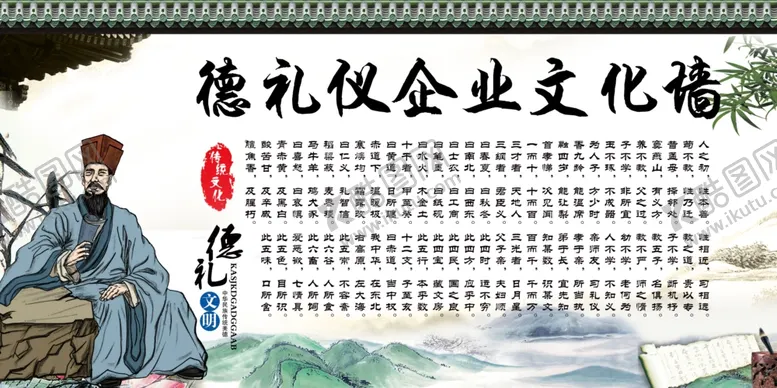 德礼仪企业文化墙
人之初，性本善。性相近，习相远。
苟不教，性乃迁。教之道，贵以专。
昔孟母，择邻处。子不学，断机杼。
窦燕山，有义方。教五子，名俱扬。
养不教，父之过。教不严，师之惰。
子不学，非所宜。幼不学，老何为。
玉不琢，不成器。人不学，不知义。
为人子，方少时。亲师友，习礼仪。
香九龄，能温席。孝于亲，所当执。
融四岁，能让梨。弟于长，宜先知。
首孝悌，次见闻。知某数，识某文。
一而十，十而百。百而千，千而万。
三才者，天地人。三光者，日月星。
三纲者，君臣义。父子亲，夫妇顺。
曰春夏，曰秋冬。此四时，运不穷。
曰南北，曰西东。此四方，应乎中。
曰士农，曰工商。此四民，国之良。
此四宝，藏文房。
曰水火，木金土。此五行，本乎数。
十干者，甲至癸。十二支，子至亥。
曰黄道，日所躔。曰赤道，当中权。
赤道下，温暖极。我中华，在东北。
寒燠均，霜露改。右高原，左大海。
曰仁义，礼智信。此五常，不容紊。
稻粱菽，麦黍稷。此六谷，人所食。
马牛羊，鸡犬豕。此六畜，人所饲。
曰喜怒，曰哀惧。爱恶欲，七情具。
青赤黄，及黑白。此五色，目所识。
酸苦甘，及辛咸。此五味，口所含。
膻焦香，及腥朽。
传统文化
德礼
文明
KASJKDGADGGAAB
酷图网
www.ikutu.com